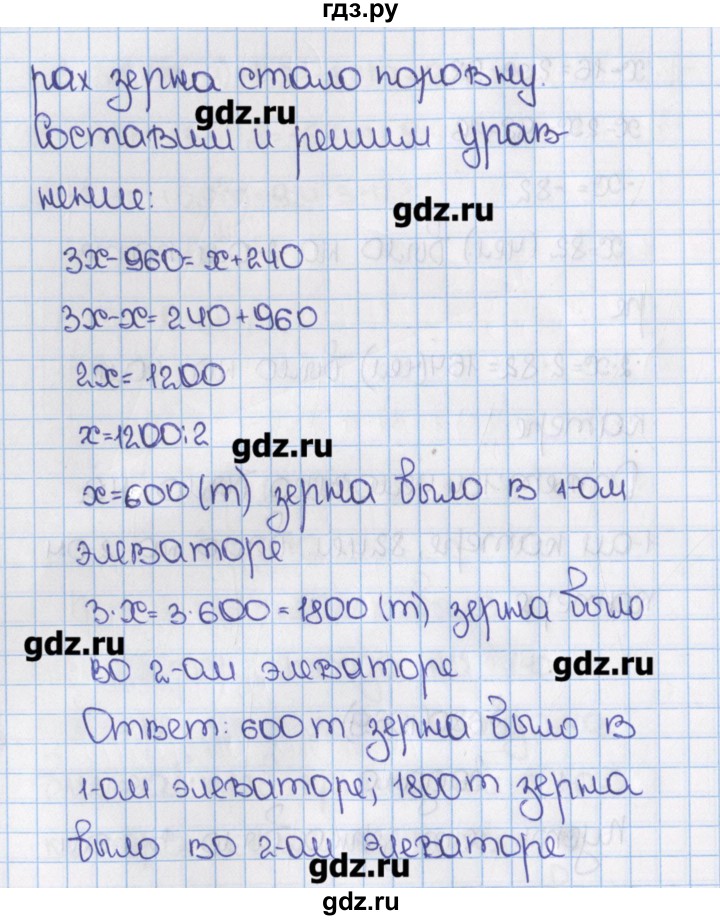 гдз.ру
рах зерна стало поровну.
gdz.ru
Составим и решим урав-
нение:
gdz.ru
3x-960=x+240
3x-x=240+960
2x=1200
x=1200:2
gdz.ru
x=600(т) зерна было в 1-ом
элеваторе
3·x=3·600=1800(т) зерна было
gdz.ru
во 2-ом элеваторе
gdz.ru
Ответ: 600т зерна было в
1-ом элеваторе; 1800т зерна
было во 2-ом элеваторе
gdz.ru
gdz.ru